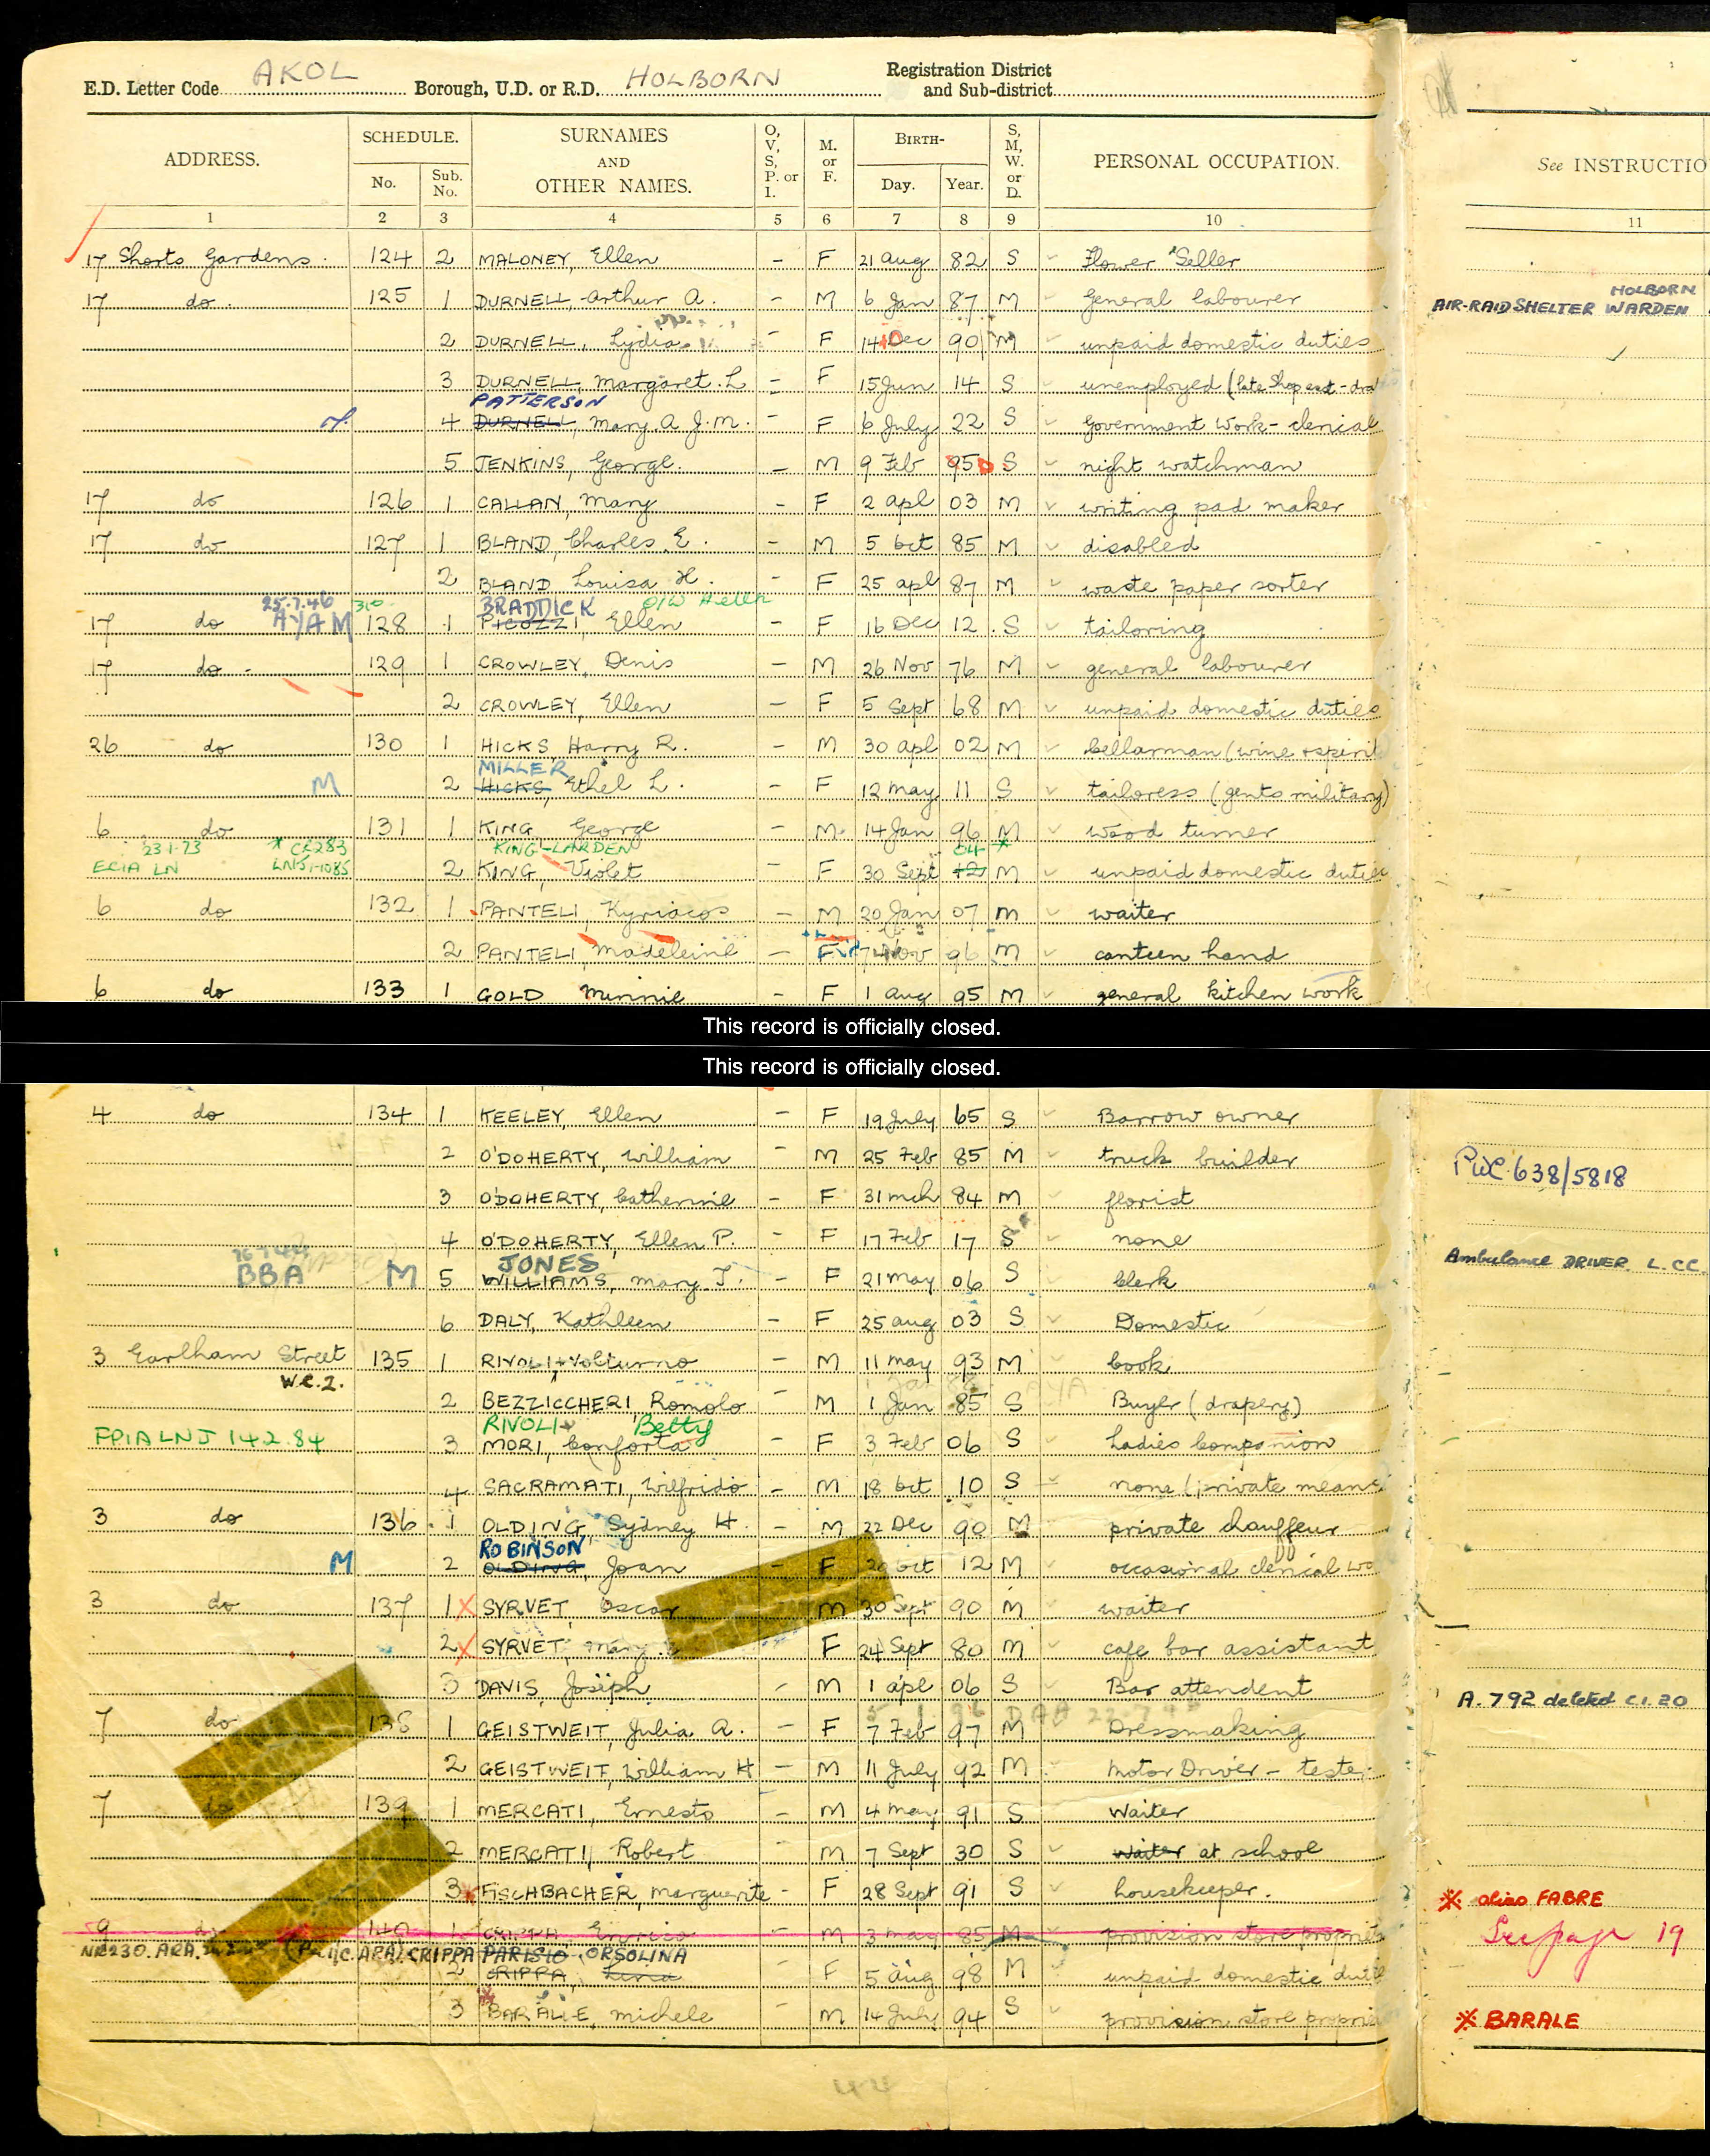 E.D. Letter Code AKOL Borough, U.D. or R.D. HOLBORN Registration District and Sub-district
ADDRESS. SCHEDULE. No. Sub. No. SURNAMES AND OTHER NAMES. O, V, S, P. or I. M. or F. BIRTH- Day. Year. S, M, W. or D. PERSONAL OCCUPATION. See INSTRUCTIO
1 2 3 4 5 6 7 8 9 10 11
17 Shorts Gardens. 124 2 MALONEY, Ellen - F 21 Aug 82 S Flower Seller
17 do. 125 1 DURNELL, Arthur A. - M 6 Jan 87 M General labourer HOLBORN AIR-RAID SHELTER WARDEN
2 DURNELL, Lydia - F 14 Dec 90 M unpaid domestic duties
3 DURNELL, Margaret. L - F 15 Jun 14 S unemployed (late Shop asst-
PATTERSON
4 DURNELL, Mary A J. M. - F 6 July 22 S Government Work - clerical
5 JENKINS, George. - M 9 Feb 95 S night watchman
17 do 126 1 CALLAN, Mary - F 2 apl 03 M writing pad maker
17 do 127 1 BLAND, Charles. E. - M 5 Oct 85 M disabled
2 BLAND Louisa H. - F 25 apl 87 M waste paper sorter
25.7.46 310 BRADDICK O/W Helen
17 do AYA M 128 1 PICOZZI, Ellen - F 16 Dec 12 S tailoring
17 do - 129 1 CROWLEY, Denis - M 26 Nov 76 M general labourer
2 CROWLEY, Ellen - F 5 Sept 68 M unpaid domestic duties
26 do 130 1 HICKS Harry R. - M 30 apl 02 M Cellarman (wine & spirit
MILLER
M 2 HICKS, Ethel L. - F 12 may 11 S tailoress (gents military)
6 do 131 1 KING, George - M 14 Jan 96 M wood turner
23.1.73 * CR283 KING-LARDEN 04 *
ECIA LN LNJ51-1085 2 KING, Violet - F 30 Sept 12 M unpaid domestic dutie
6 do 132 1 PANTELI, Kyriacos - M 20 Jan 07 M waiter
2 PANTELI, Madeleine - F Nov 96 M canteen hand
6 do 133 1 GOLD Minnie - F 1 Aug 95 M general kitchen work
This record is officially closed.
This record is officially closed.
4 do 134 1 KEELEY, Ellen - F 19 July 65 S Barrow owner
2 O'DOHERTY, William - M 25 Feb 85 M truck builder PWC 638/5818
3 O'DOHERTY, Catherine - F 31 mch 84 M florist
4 O'DOHERTY, Ellen P. - F 17 Feb 17 S none
JONES Ambulance DRIVER. L.CC.
BBA M 5 WILLIAMS, Mary J. - F 21 may 06 S Clerk
6 DALY, Kathleen - F 25 aug 03 S Domestic
3 Earlham Street 135 1 RIVOLI, Volturno - M 11 may 93 M Cook
W.C.2.
2 BEZZICCHERI, Romolo - M 1 Jan 85 S Buyer (drapery)
RIVOLI Betty
FPIALNJ 14 2. 84 3 MORI, Conforta - F 3 Feb 06 S Ladies Companion
4 SACRAMATI, Wilfrido - M 18 Oct 10 S none (private means
3 do 136 1 OLDING, Sydney H. - M 22 Dec 90 M private chauffeur
ROBINSON
M 2 OLDING, Joan - F 20 Oct 12 M occasional clerical wo
3 do 137 1 X SYRVET, Oscar M 30 Sept 90 M waiter
2 X SYRVET, Mary F 24 Sept 80 M cafe bar assistant
3 DAVIS, Joseph - M 1 apl 06 S Bar attendent A. 792 deleted C1.20
7 do 138 1 GEISTWEIT, Julia A. - F 7 Feb 97 M Dressmaking
2 GEISTWEIT, William H - M 11 July 92 M Motor Driver - teste
7 139 1 MERCATI, Ernesto - M 4 may 91 S Waiter
2 MERCATI, Robert - M 7 Sept 30 S Waiter at school
3 FISCHBACHER, Marguerite - F 28 Sept 91 S housekeeper. ※ alias FABRE
9 140 1 CRIPPA, Enrico - M 3 may 85 M provision store propriet See page 19
NR230. ARA. CRIPPA PARISIO ORSOLINA
2 CRIPPA, - F 5 aug 98 M unpaid domestic duti
3 BARALLE, Michele - M 14 July 94 S provision store propri ※ BARALE